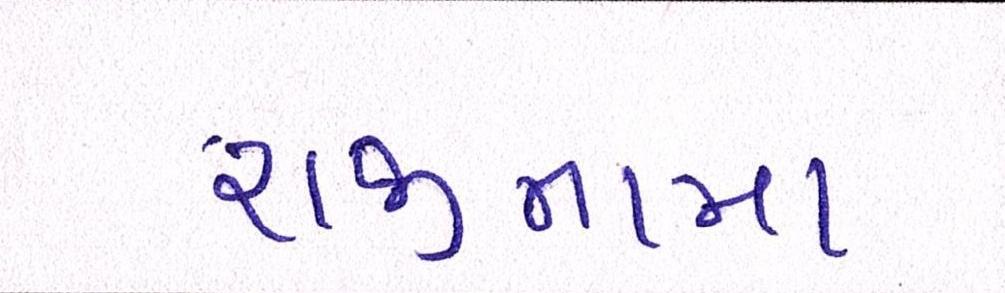 રાજીનામા